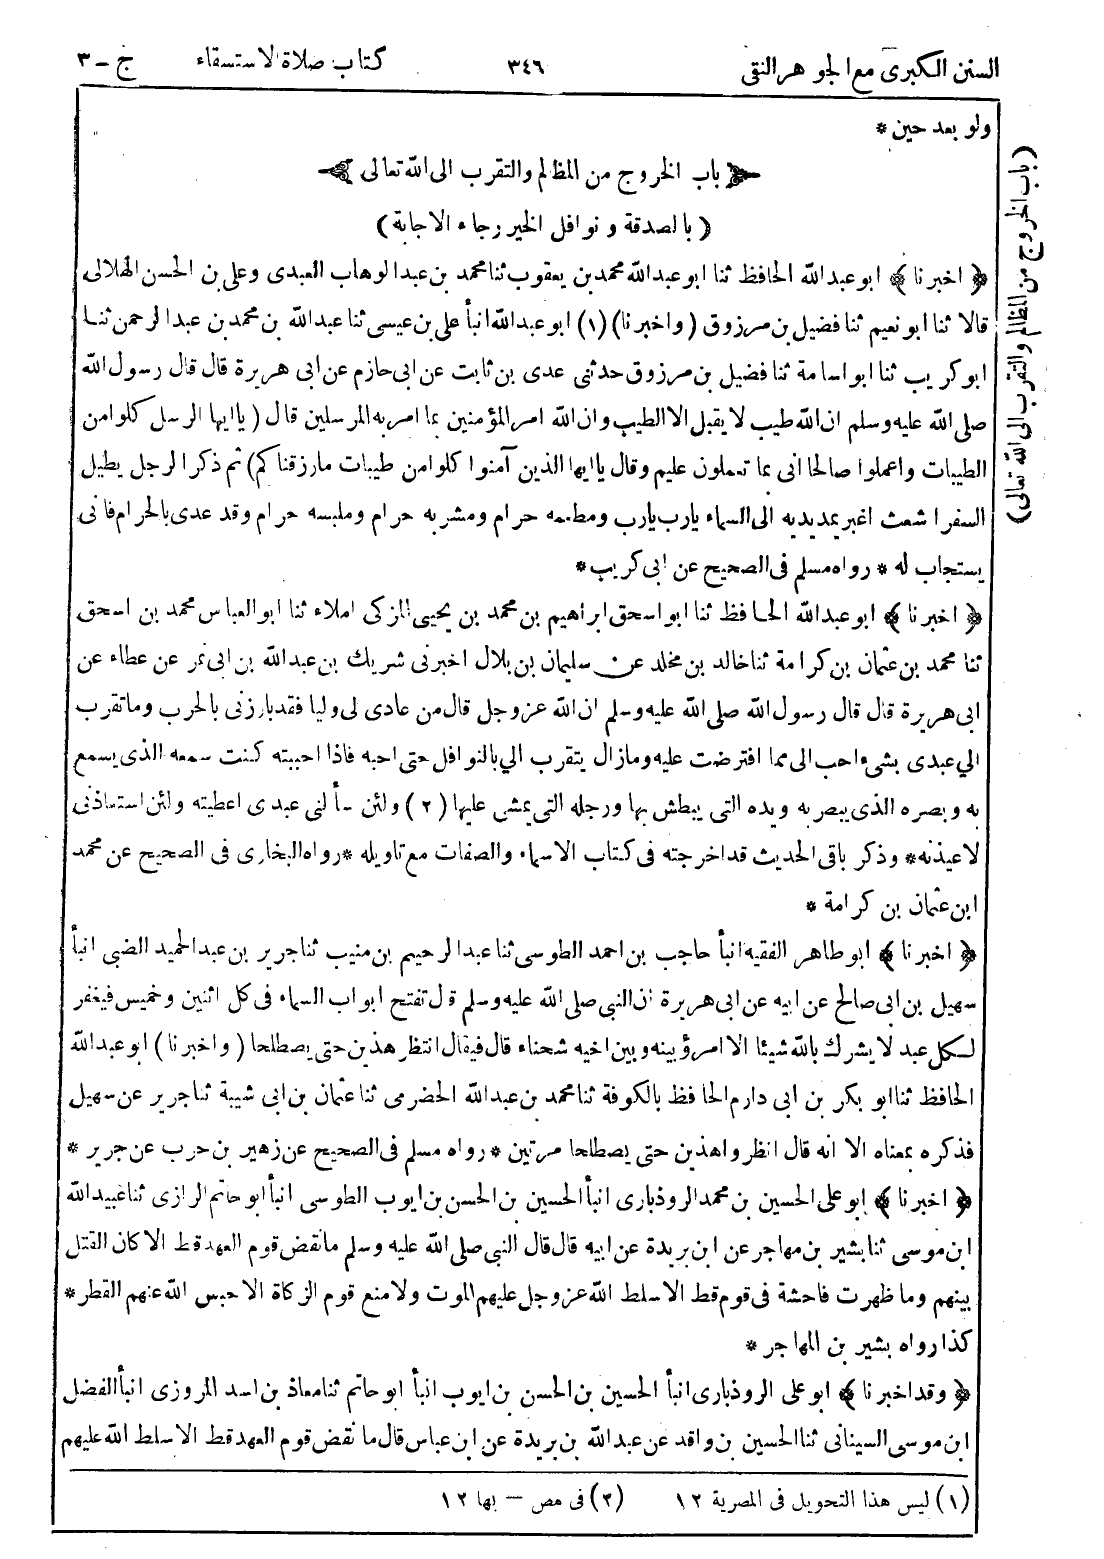 السنن الكبرى مع الجوهر النقى ٣٤٦ كتاب صلاة الاستسقاء ج - ٣
ولو بعد حين *
باب الخروج من المظالم والتقرب الى الله تعالى
(بالصدقة ونوافل الخير رجاء الاجابة)
(باب الخروج من المظالم والتقرب الى الله تعالى)
﴿ اخبرنا ﴾ ابو عبد الله الحافظ ثنا ابو عبد الله محمد بن يعقوب ثنا محمد بن عبد الوهاب العبدى وعلى بن الحسن الهلالى
قالا ثنا ابو نعيم ثنا فضيل بن مرزوق (واخبرنا) (١) ابو عبد الله انبأ على بن عيسى ثنا عبد الله بن محمد بن عبد الرحمن ثنا
ابو كريب ثنا ابو اسامة ثنا فضيل بن مرزوق حدثنى عدى بن ثابت عن ابى حازم عن ابى هريرة قال قال رسول الله
صلى الله عليه وسلم ان الله طيب لا يقبل الا الطيب وان الله امر المؤمنين بما امر به المرسلين قال (يا ايها الرسل كلوا من
الطيبات واعملوا صالحا انى بما تعملون عليم وقال يا ايها الذين آمنوا كلوا من طيبات ما رزقناكم) ثم ذكر الرجل يطيل
السفر اشعث اغبر يمد يديه الى السماء يا رب يا رب ومطعمه حرام ومشربه حرام وملبسه حرام وقد غدى بالحرام فانى
يستجاب له * رواه مسلم فى الصحيح عن ابى كريب *
﴿ اخبرنا ﴾ ابو عبد الله الحافظ ثنا ابو اسحق ابراهيم بن محمد بن يحيى المزكى املاء ثنا ابو العباس محمد بن اسحق
ثنا محمد بن عثمان بن كرامة ثنا خالد بن مخلد عن سليمان بن بلال اخبرنى شريك بن عبد الله بن ابى نمر عن عطاء عن
ابى هريرة قال قال رسول الله صلى الله عليه وسلم ان الله عز وجل قال من عادى لى وليا فقد بارزنى بالحرب وما تقرب
الي عبدى بشىء احب الى مما افترضت عليه وما زال يتقرب الي بالنوافل حتى احبه فاذا احببته كنت سمعه الذى يسمع
به وبصره الذى يبصر به ويده التى يبطش بها ورجله التى يمشى عليها (٢) ولئن سألنى عبدى اعطيته ولئن استعاذنى
لاعيذنه * وذكر باقى الحديث قد اخرجته فى كتاب الاسماء والصفات مع تاويله * رواه البخارى فى الصحيح عن محمد
ابن عثمان بن كرامة *
﴿ اخبرنا ﴾ ابو طاهر الفقيه انبأ حاجب بن احمد الطوسى ثنا عبد الرحيم بن منيب ثنا جرير بن عبد الحميد الضبى انبأ
سهيل بن ابى صالح عن ابيه عن ابى هريرة ان النبي صلى الله عليه وسلم قال تفتح ابواب السماء فى كل اثنين وخميس فيغفر
لكل عبد لا يشرك بالله شيئا الا امرؤ بينه وبين اخيه شحناء قال فيقال انتظر هذين حتى يصطلحا (واخبرنا) ابو عبد الله
الحافظ ثنا ابو بكر بن ابى دارم الحافظ بالكوفة ثنا محمد بن عبد الله الحضرمى ثنا عثمان بن ابى شيبة ثنا جرير عن سهيل
فذكره بمعناه الا انه قال انظروا هذين حتى يصطلحا مرتين * رواه مسلم فى الصحيح عن زهير بن حرب عن جرير *
﴿ اخبرنا ﴾ ابو على الحسين بن محمد الروذبارى انبأ الحسين بن الحسن بن ايوب الطوسى انبأ ابو حاتم الرازى ثنا عبيد الله
ابن موسى ثنا بشير بن مهاجر عن ابن بريدة عن ابيه قال قال النبي صلى الله عليه وسلم ما نقض قوم العهد قط الا كان القتل
بينهم وما ظهرت فاحشة فى قوم قط الا سلط الله عز وجل عليهم الموت ولا منع قوم الزكاة الا حبس الله عنهم القطر *
كذا رواه بشير بن المهاجر *
﴿ وقد اخبرنا ﴾ ابو على الروذبارى انبأ الحسين بن الحسن بن ايوب انبأ ابو حاتم ثنا معاذ بن اسد المروزى انبأ الفضل
ابن موسى السينانى ثنا الحسين بن واقد عن عبد الله بن بريدة عن ابن عباس قال ما نقض قوم العهد قط الا سلط الله عليهم
(١) ليس هذا التحويل فى المصرية ١٢ (٢) فى مص - بها ١٢